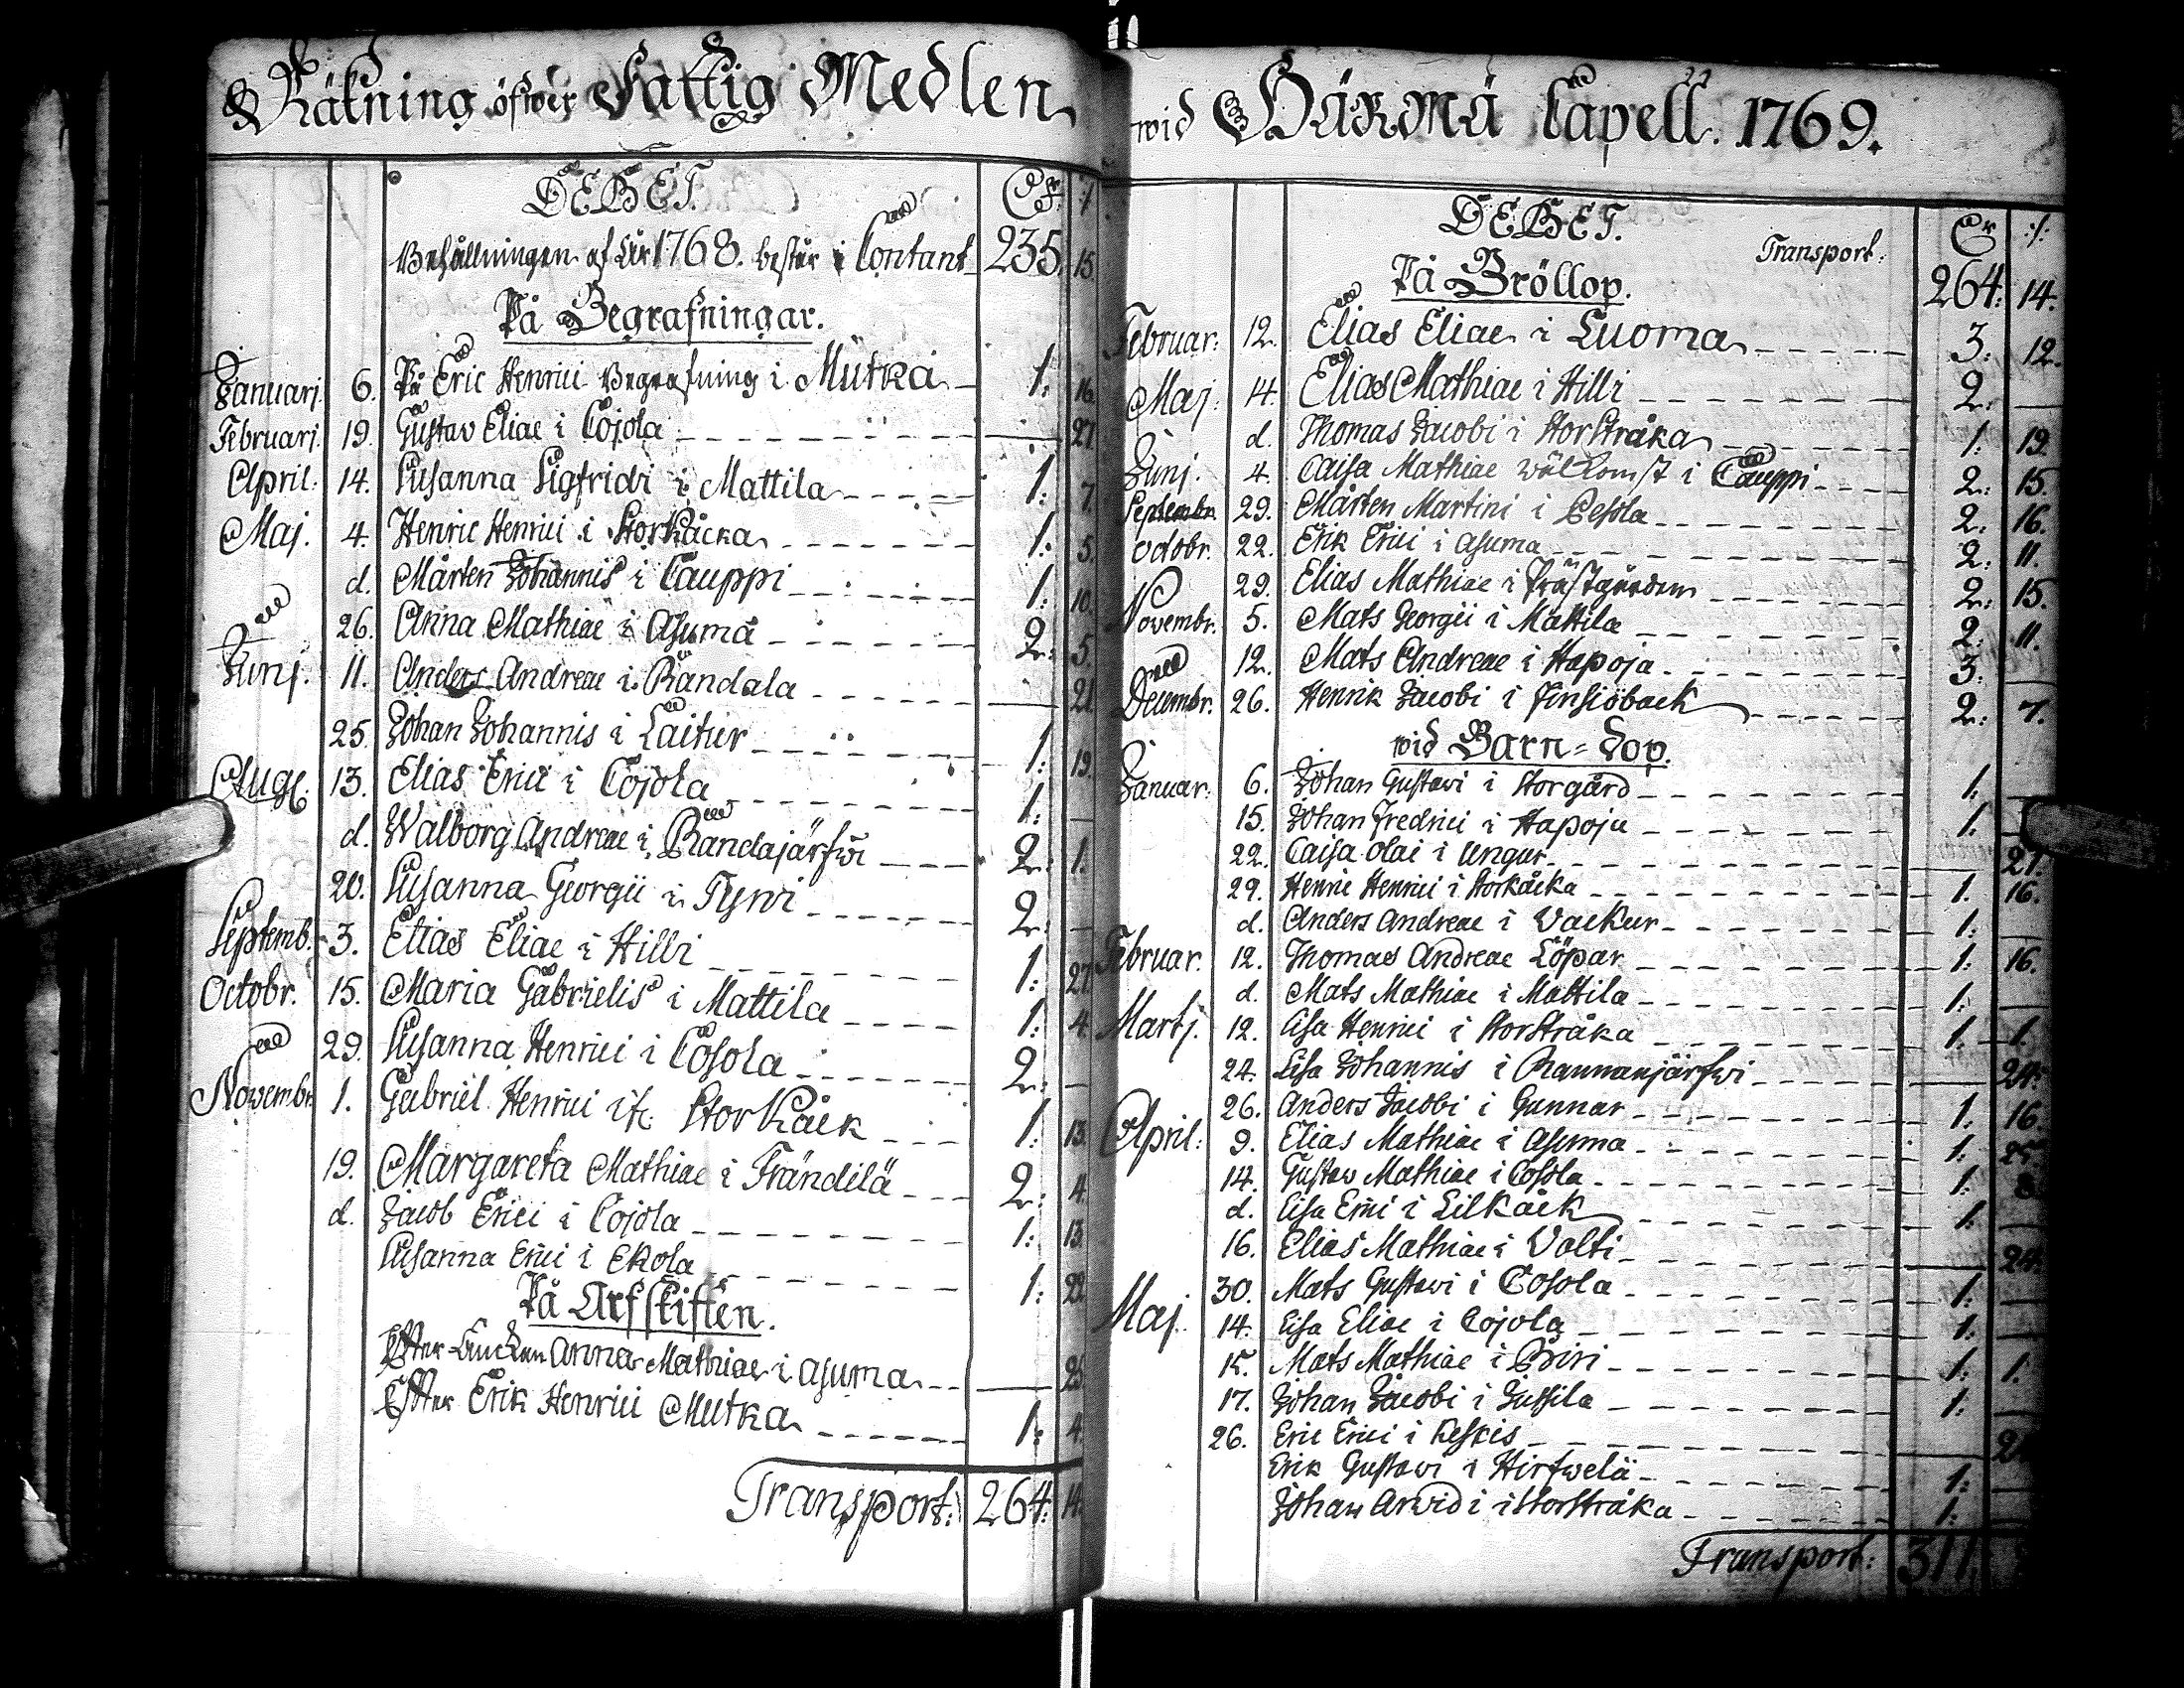 Räkning öfwer Fattig Medlen
DEBET. Cr :/:
Behållningen af åhr 1768. består i Contant 235. 15.
På Begrafningar.
Januarj. 6. På Eric Henrici Begrafning i Mutka 1: 16.
Februarj. 19. Gustav Eliae i Cojola 27
April. 14. Susanna Sigfridi i Mattila 1: 7.
Maj. 4. Henric Henrici i StorKåcka 1: 5.
d. Mårten Johannis i Cauppi 1: 10.
26. Anna Mathiae i Asuma 2: 5.
Junj. 11. Anders Andreae i Randala 21
25. Johan Johannis i Laitur 1: 19.
Aug. 13. Elias Erici i Cojola 1: —
d. Walborg Andreae i Randajärfwi 2: 1.
20. Susanna Georgii i Tyni 2: —
Septemb. 3. Elias Eliae i Hilli 1: 27.
Octobr. 15. Maria Gabrielis i Mattila 1: 4.
29. Susanna Henrici i Cosola 2: —
Novembr. 1. Gabriel Henrici it: StorKåck 1: 13.
19. Margareta Mathiae i Frändilä 2: 4.
d. Jacob Erici i Cojola 1: 13
Susanna Erici i Ekola 1: 22.
På Arfskiften.
Efter Änckan Anna Mathiae i Asuma 25.
Efter Erik Henrici Mutka 1: 4.
Transport: 264: 14.
wid HÄRMÄ Capell. 1769.
DEBET. Cr :/:
Transport: 264: 14.
På Bröllop.
Februar: 12. Elias Eliae i Luoma 3: 12.
Maj: 14. Elias Mathiae i Hilli 2: —
d. Thomas Jacobi i StorStråka 1: 19.
Junj. 4. Caisa Mathiae wälkomst i Cauppi 2: 15.
Septembr. 29. Mårten Martini i Pesola 2: 16.
Octobr. 22. Erik Erici i Asuma 2: 11.
29. Elias Mathiae i Prästgården 2: 15.
Novembr. 5. Mats Georgii i Mattila 2: 11.
12. Mats Andreae i Hapoja 3: —
Decembr. 26. Henrik Jacobi i Finsiöback 2: 7.
wid Barn=Dop.
Januar: 6. Johan Gustavi i Storgård 1:
15. Johan Fredrici i Hapoja 1: —
22. Caisa Olai i Ungur 21.
29. Henric Henrici i Storkåcka 1: 16.
d. Anders Andreae i Vackur 1: —
Februar. 12. Thomas Andreae Löpar 1: 16.
d. Mats Mathiae i Mattila 1: —
Martj. 12. Lisa Henrici i StorStråka 1: 1.
24. Lisa Johannis i Rannanjärfwi 24.
26. Anders Jacobi i Gunnar 1: 16.
April: 9. Elias Mathiae i Asuma 1: 25.
14. Gustav Mathiae i Cosola 1: 8
d. Lisa Erici i Lilkåck 1: —
16. Elias Mathiae i Volti 24.
30. Mats Gustavi i Cosola 1: —
Maj. 14. Lisa Eliae i Cojola 1: —
15. Mats Mathiae i Piri 1: 1.
17. Johan Jacobi i Jussila 1: —
26. Eric Erici i Keskis
Erik Gustavi i Hirfwelä 1: —
Johan Arvidi i StorStråka 1: —
Transport: 311.